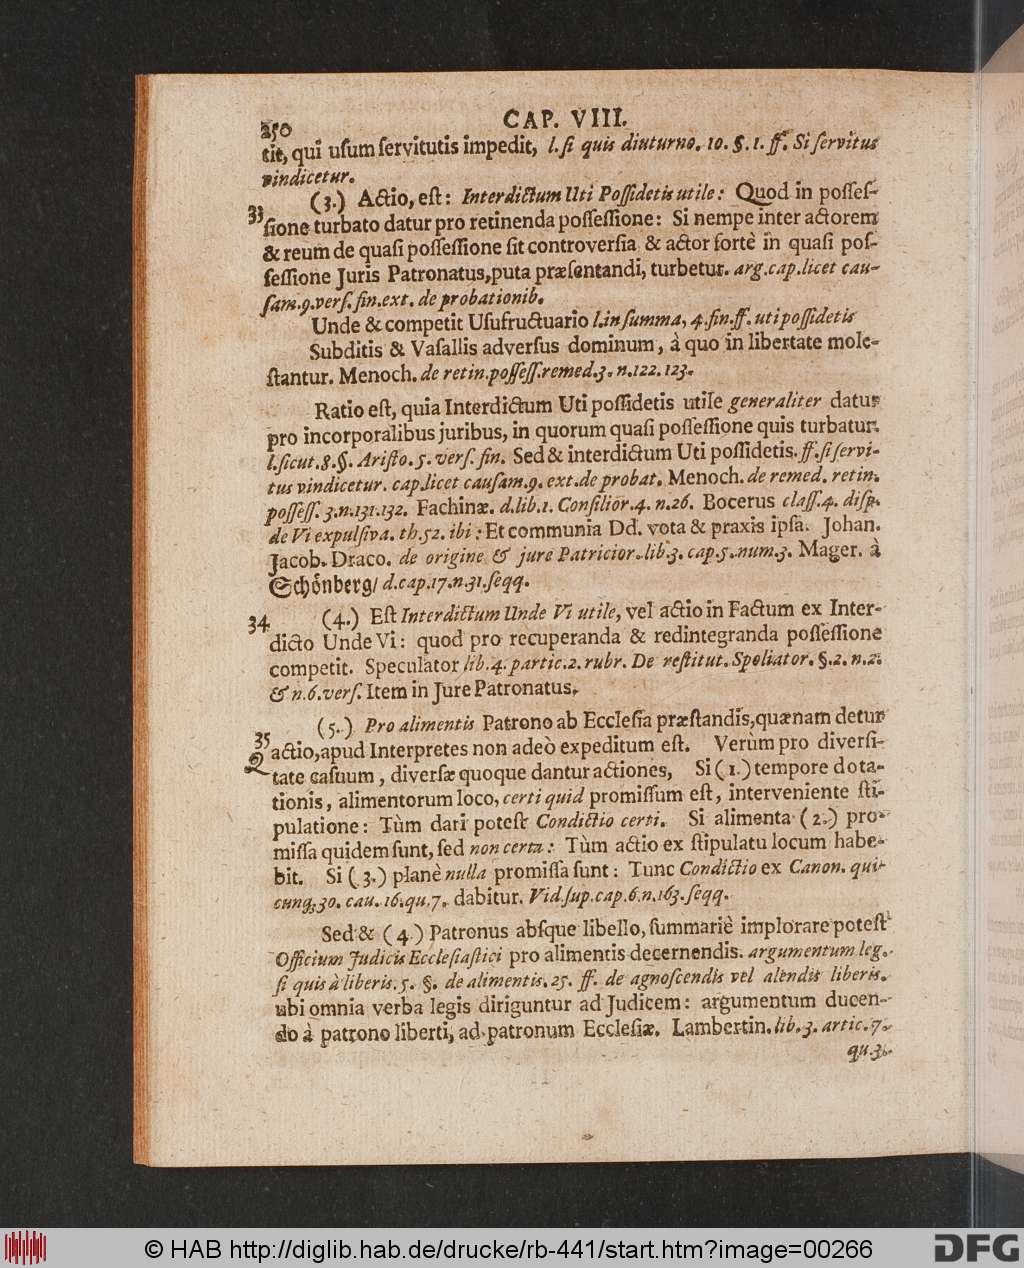 250 CAP. VIII.
tit, qui uſum ſervitutis impedit, l. ſi quis diuturno. 10. §. 1. ff. Si ſervitus
vindicetur.
33 (3.) Actio, eſt: Interdictum Uti Poſſidetis utile: Quod in poſſeſ-
ſione turbato datur pro retinenda poſſeſſione: Si nempe inter actorem
& reum de quaſi poſſeſſione ſit controverſia & actor fortè in quaſi poſ-
ſeſſione Juris Patronatus, puta præſentandi, turbetur. arg. cap. licet cau-
ſam. 9. verſ. fin. ext. de probationib.
Unde & competit Uſufructuario l. in ſumma, 4. fin. ff. uti poſſidetis
Subditis & Vaſallis adverſus dominum, à quo in libertate mole-
ſtantur. Menoch. de retin. poſſeſſ. remed. 3. n. 122. 123.
Ratio eſt, quia Interdictum Uti poſſidetis utile generaliter datur
pro incorporalibus juribus, in quorum quaſi poſſeſſione quis turbatur.
l. ſicut. 8. §. Ariſto. 5. verſ. fin. Sed & interdictum Uti poſſidetis. ff. ſi ſervi-
tus vindicetur. cap. licet cauſam. 9. ext. de probat. Menoch. de remed. retin.
poſſeſſ. 3. n. 131. 132. Fachinæ. d. lib. 1. Conſilior. 4. n. 26. Bocerus claſſ. 4. diſp.
de Vi expulſiva. th. 52. ibi: Et communia Dd. vota & praxis ipſa. Johan.
Jacob. Draco. de origine & jure Patricior. lib. 3. cap. 5. num. 3. Mager. à
Schönberg/ d. cap. 17. n. 31. ſeqq.
34 (4.) Eſt Interdictum Unde Vi utile, vel actio in Factum ex Inter-
dicto Unde Vi: quod pro recuperanda & redintegranda poſſeſſione
competit. Speculator lib. 4. partic. 2. rubr. De reſtitut. Spoliator. §. 2. n. 2.
& n. 6. verſ. Item in Jure Patronatus.
(5.) Pro alimentis Patrono ab Eccleſia præſtandis, quænam detur
35 actio, apud Interpretes non adeò expeditum eſt. Verùm pro diverſi-
2 tate caſuum, diverſæ quoque dantur actiones, Si (1.) tempore dota-
tionis, alimentorum loco, certi quid promiſſum eſt, interveniente ſti-
pulatione: Tùm dari poteſt Condictio certi. Si alimenta (2.) pro-
miſſa quidem ſunt, ſed non certa: Tùm actio ex ſtipulatu locum habe-
bit. Si (3.) planè nulla promiſſa ſunt: Tunc Condictio ex Canon. qui-
cunq; 30. cau. 16. qu. 7. dabitur. Vid. ſup. cap. 6. n. 163. ſeqq.
Sed & (4.) Patronus abſque libello, ſummariè implorare poteſt
Officium Judicis Eccleſiaſtici pro alimentis decernendis. argumentum leg.
ſi quis à liberis. 5. §. de alimentis. 25. ff. de agnoſcendis vel alendis liberis.
ubi omnia verba legis diriguntur ad Judicem: argumentum ducen-
do à patrono liberti, ad patronum Eccleſiæ. Lambertin. lib. 3. artic. 7.
qu. 3.
© HAB http://diglib.hab.de/drucke/rb-441/start.htm?image=00266
DFG